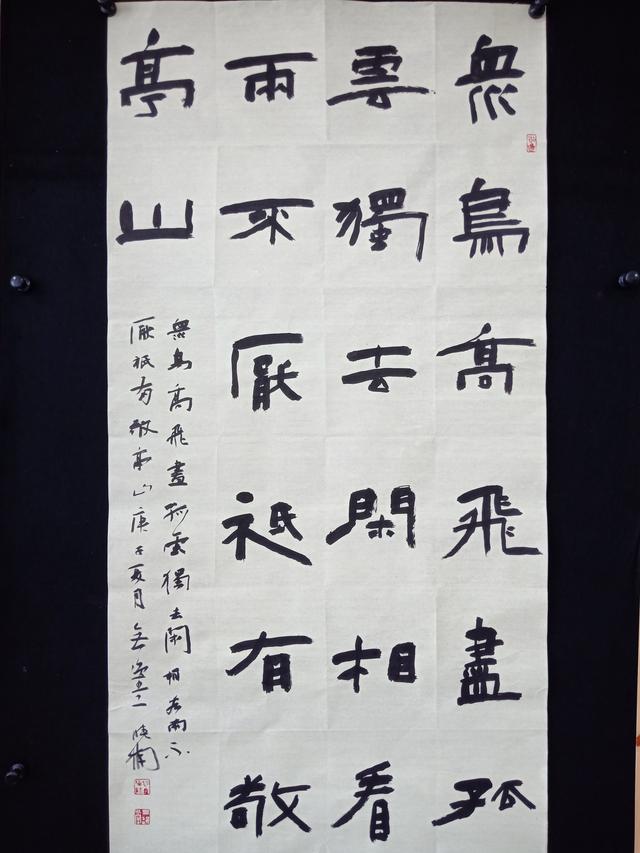 衆鳥高飛盡孤
雲獨去閑相看
兩不厭祇有敬
亭山
衆鳥高飛盡孤雲獨去閑相看兩不
厭祇有敬亭山庚子夏月